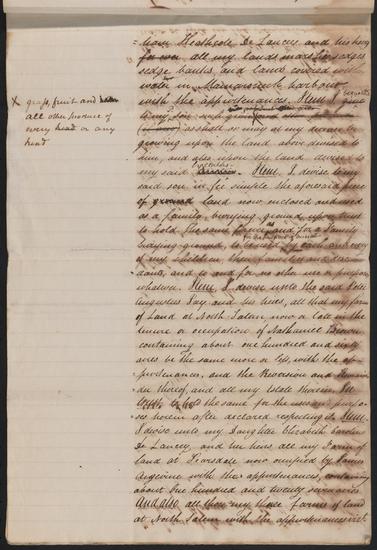 William Heathcote De Lancey and his heirs
for ever all my lands marshes sedges
sedge banks, and land covered with
water in Mamaroneck harbour
with the appurtenances. Item I give
to my son
as shall or may at my decease be
growing upon the land above devised to
him, and also upon the land devised to
my said Item. I devise to my
said son in fee simple the aforesaid piece
of ground land now enclosed and used
as a family burying ground upon trust
to hold the same forever as and for a family
burying ground, to be used by each and every
of my children their families and descen
dants, and to and for no other use or purpose
whatever. Item I devise unto the said Peter
Augustus Jay and his heirs, all that my farm
of Land at North Salem now or late in the
tenure or occupation of Nathaniel Brown
containing about one hundred and sixty
acres be the same more or less, with the ap-
purtenances, and the Reversion and Remain
der thereof, and all my Estate therein. In
trust to hold the same for the uses and purpo
ses herein after declared respecting it. Item
I devise unto my Daughter Elizabeth Caroline
De Lancey and her heirs all my Farm of
land at Scarsdale now occupied by James
Angevine with the appurtenances, containing
about one hundred and twenty seven acres
And also all those my three farms of land
at North Salem with the appurtenances viz:
X grass, fruit and
all other produce of
every head or any
kind